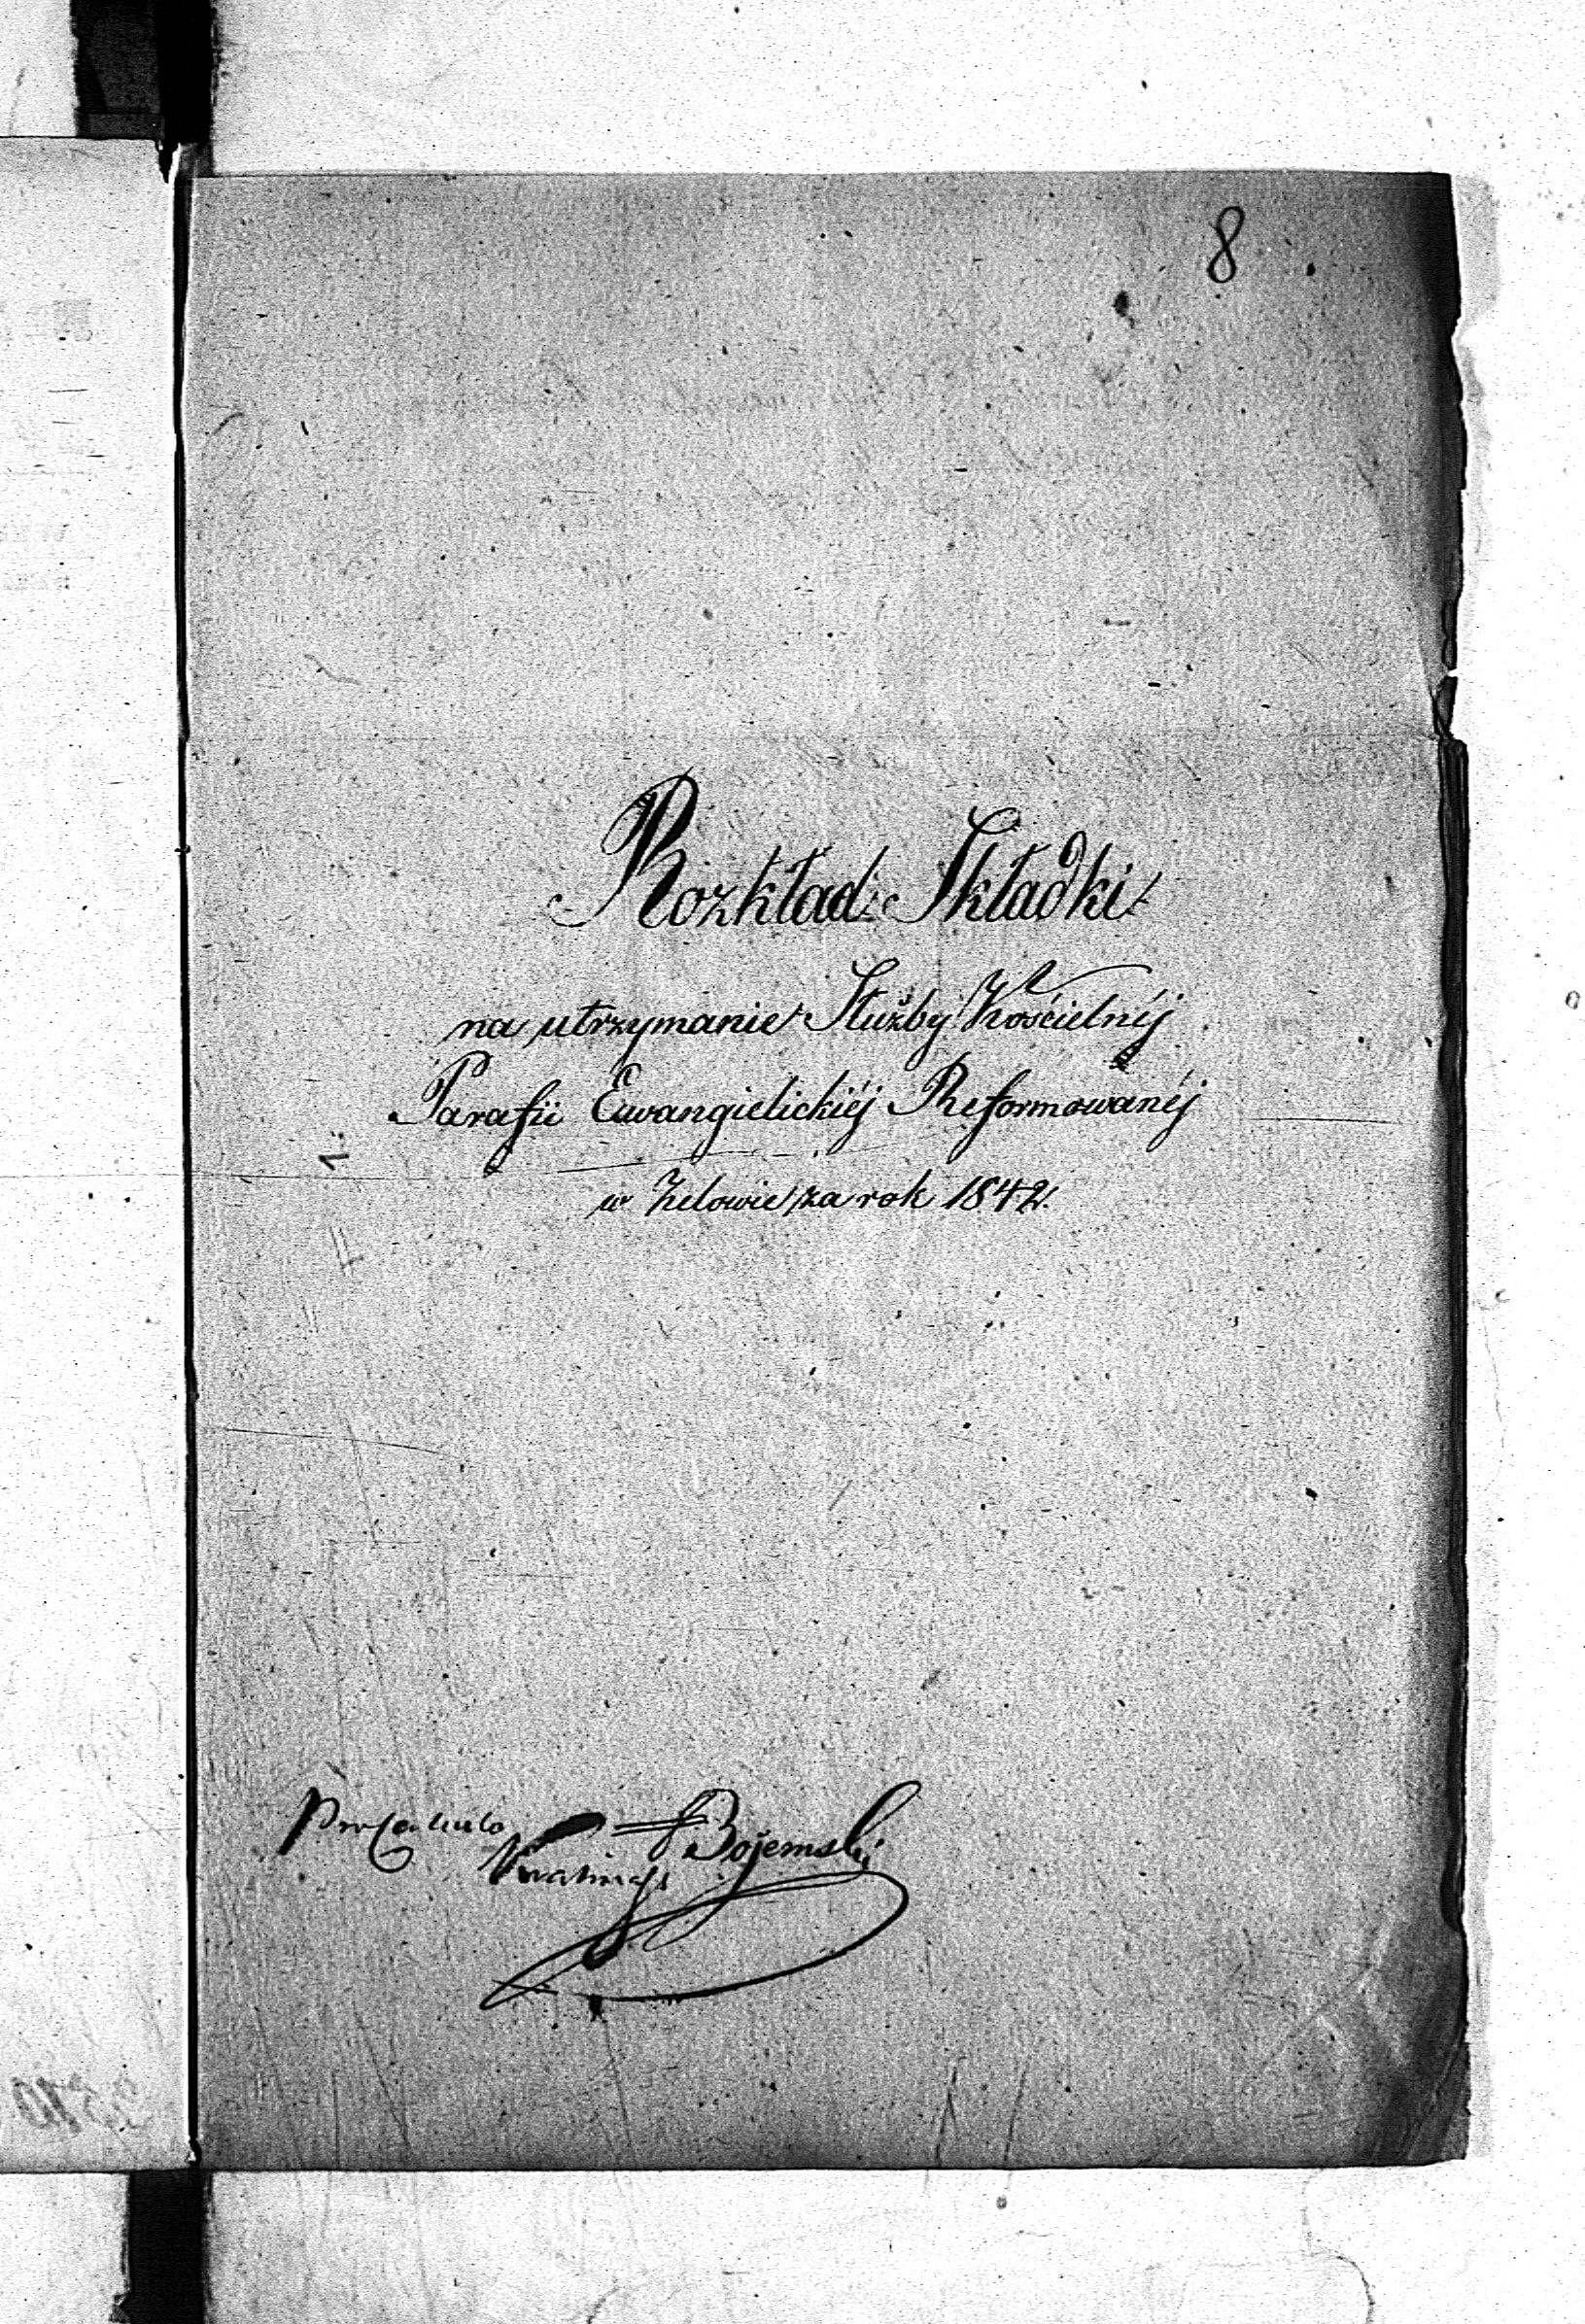 8
Rozkład Składki
na utrzymanie Służby Kościelnéj
Parafii Ewangielickiéj Reformowanéj
w Zelowie za rok 1842.
Bojemski